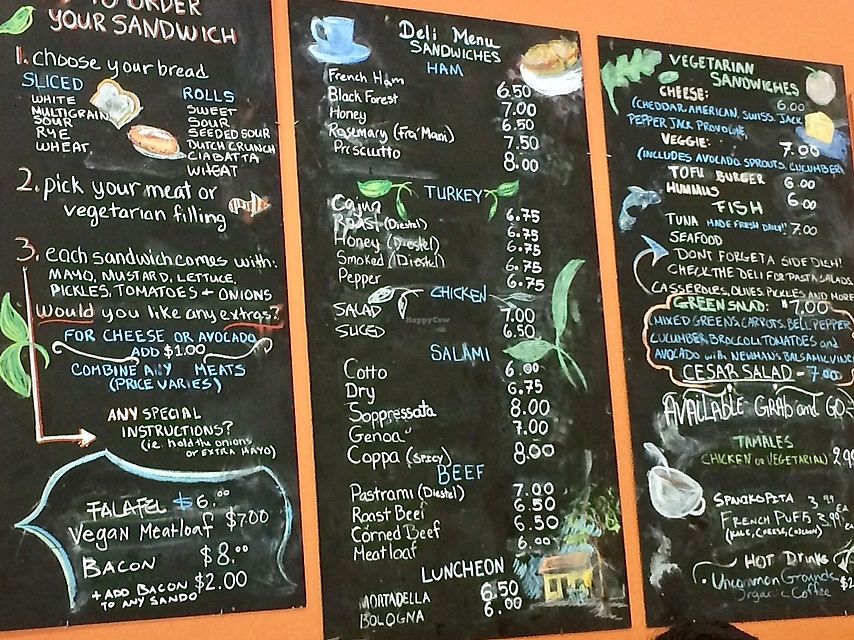 TO ORDER
YOUR SANDWICH
1. choose your bread
SLICED
WHITE
MULTIGRAIN
SOUR
RYE
WHEAT
ROLLS
SWEET
SOUR
SEEDED SOUR
DUTCH CRUNCH
CIABATTA
WHEAT
2. pick your meat or
vegetarian filling
3. each sandwich comes with:
MAYO, MUSTARD, LETTUCE,
PICKLES, TOMATOES + ONIONS
would you like any extras?
FOR CHEESE OR AVOCADO
ADD $1.00
COMBINE ANY MEATS
(PRICE VARIES)
ANY SPECIAL
INSTRUCTIONS?
(i.e. hold the onions
OR EXTRA MAYO)
FALAFEL $6.00
Vegan Meatloaf $7.00
BACON $8.00
+ ADD BACON $2.00
TO ANY SANDO
Deli Menu
SANDWICHES
HAM
French Ham 6.50
Black Forest 7.00
Honey 6.50
Rosemary (Fra'Mani) 7.50
Prosciutto 8.00
TURKEY
Cajun 6.75
ROAST (Diestel) 6.75
Honey (Diestel) 6.75
Smoked (Diestel) 6.75
Pepper 6.75
CHICKEN
SALAD 7.00
SLICED 6.50
HappyCow
SALAMI
Cotto 6.00
Dry 6.75
Soppressata 8.00
Genoa 7.00
Coppa (SPICY) 8.00
BEEF
Pastrami (Diestel) 7.00
Roast Beef 6.50
Corned Beef 6.50
Meatloaf 6.00
LUNCHEON
MORTADELLA 6.50
BOLOGNA 6.00
VEGETARIAN
SANDWICHES
CHEESE: 6.00
(CHEDDAR, AMERICAN, SWISS, JACK
PEPPER JACK PROVOLONE,
VEGGIE: 7.00
(INCLUDES AVOCADO, SPROUTS, CUCUMBER)
TOFU BURGER 6.00
HUMMUS 6.00
FISH
TUNA MADE FRESH DAILY! 7.00
SEAFOOD
DON'T FORGET A SIDE DISH!
CHECK THE DELI FOR PASTA SALADS
CASSEROLES, OLIVES, PICKLES AND MORE
GREEN SALAD: $7.00
(MIXED GREENS, CARROTS, BELL PEPPER
CUCUMBER, BROCCOLI, TOMATOES and
AVOCADO with NEWMAN'S BALSAMIC VIN
CESAR SALAD - 7.00
AVAILABLE GRAB and GO
TAMALES
CHICKEN OR VEGETARIAN) 2.99
SPANIKOPITA 3.99 EA
FRENCH PUFFS 3.99 EA
(KALE, CHEESE,
HOT Drinks
Uncommon Grounds $2
Organic Coffee